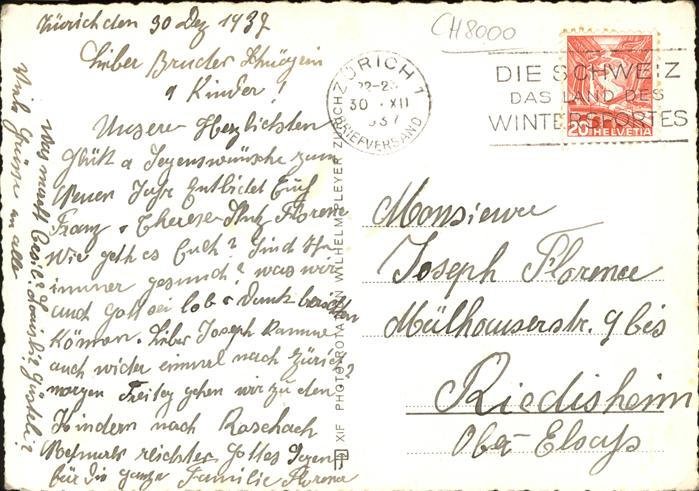 Zürich den 30 Dez 1937
Lieber Bruder Schwägerin
& Kinder!
Unsere Herzlichsten
Glük & Segenswünsche zum
Neuen Jahr Entbietet Euch
Franz & Therese Florence
Wie geth es Euch? Sind Ihr
immer gesund? was wir
auch Gott sei lob & Dank berichten
Können. Lieber Joseph Komme
auch wider einmal nach Zürich?
morgen Freitag gehen wir zu den
Kindern nach Roschach
Nochmals reichster Gottes Segen
für die ganze Familie Florence
Was macht Louis?
Viele Grüsse an alle
CH 8000
ZÜRICH 1
30. XII
1937
BRIEFVERSAND
DIE SCHWEIZ
DAS LAND DES
WINTERSPORTES
20 HELVETIA
XIF PHOTO-ROTATION WILHELM PLEYER ZÜRICH
Monsieur
Joseph Florence
Mülhauserstr. 9 bis
Riedisheim
Ober-Elsass